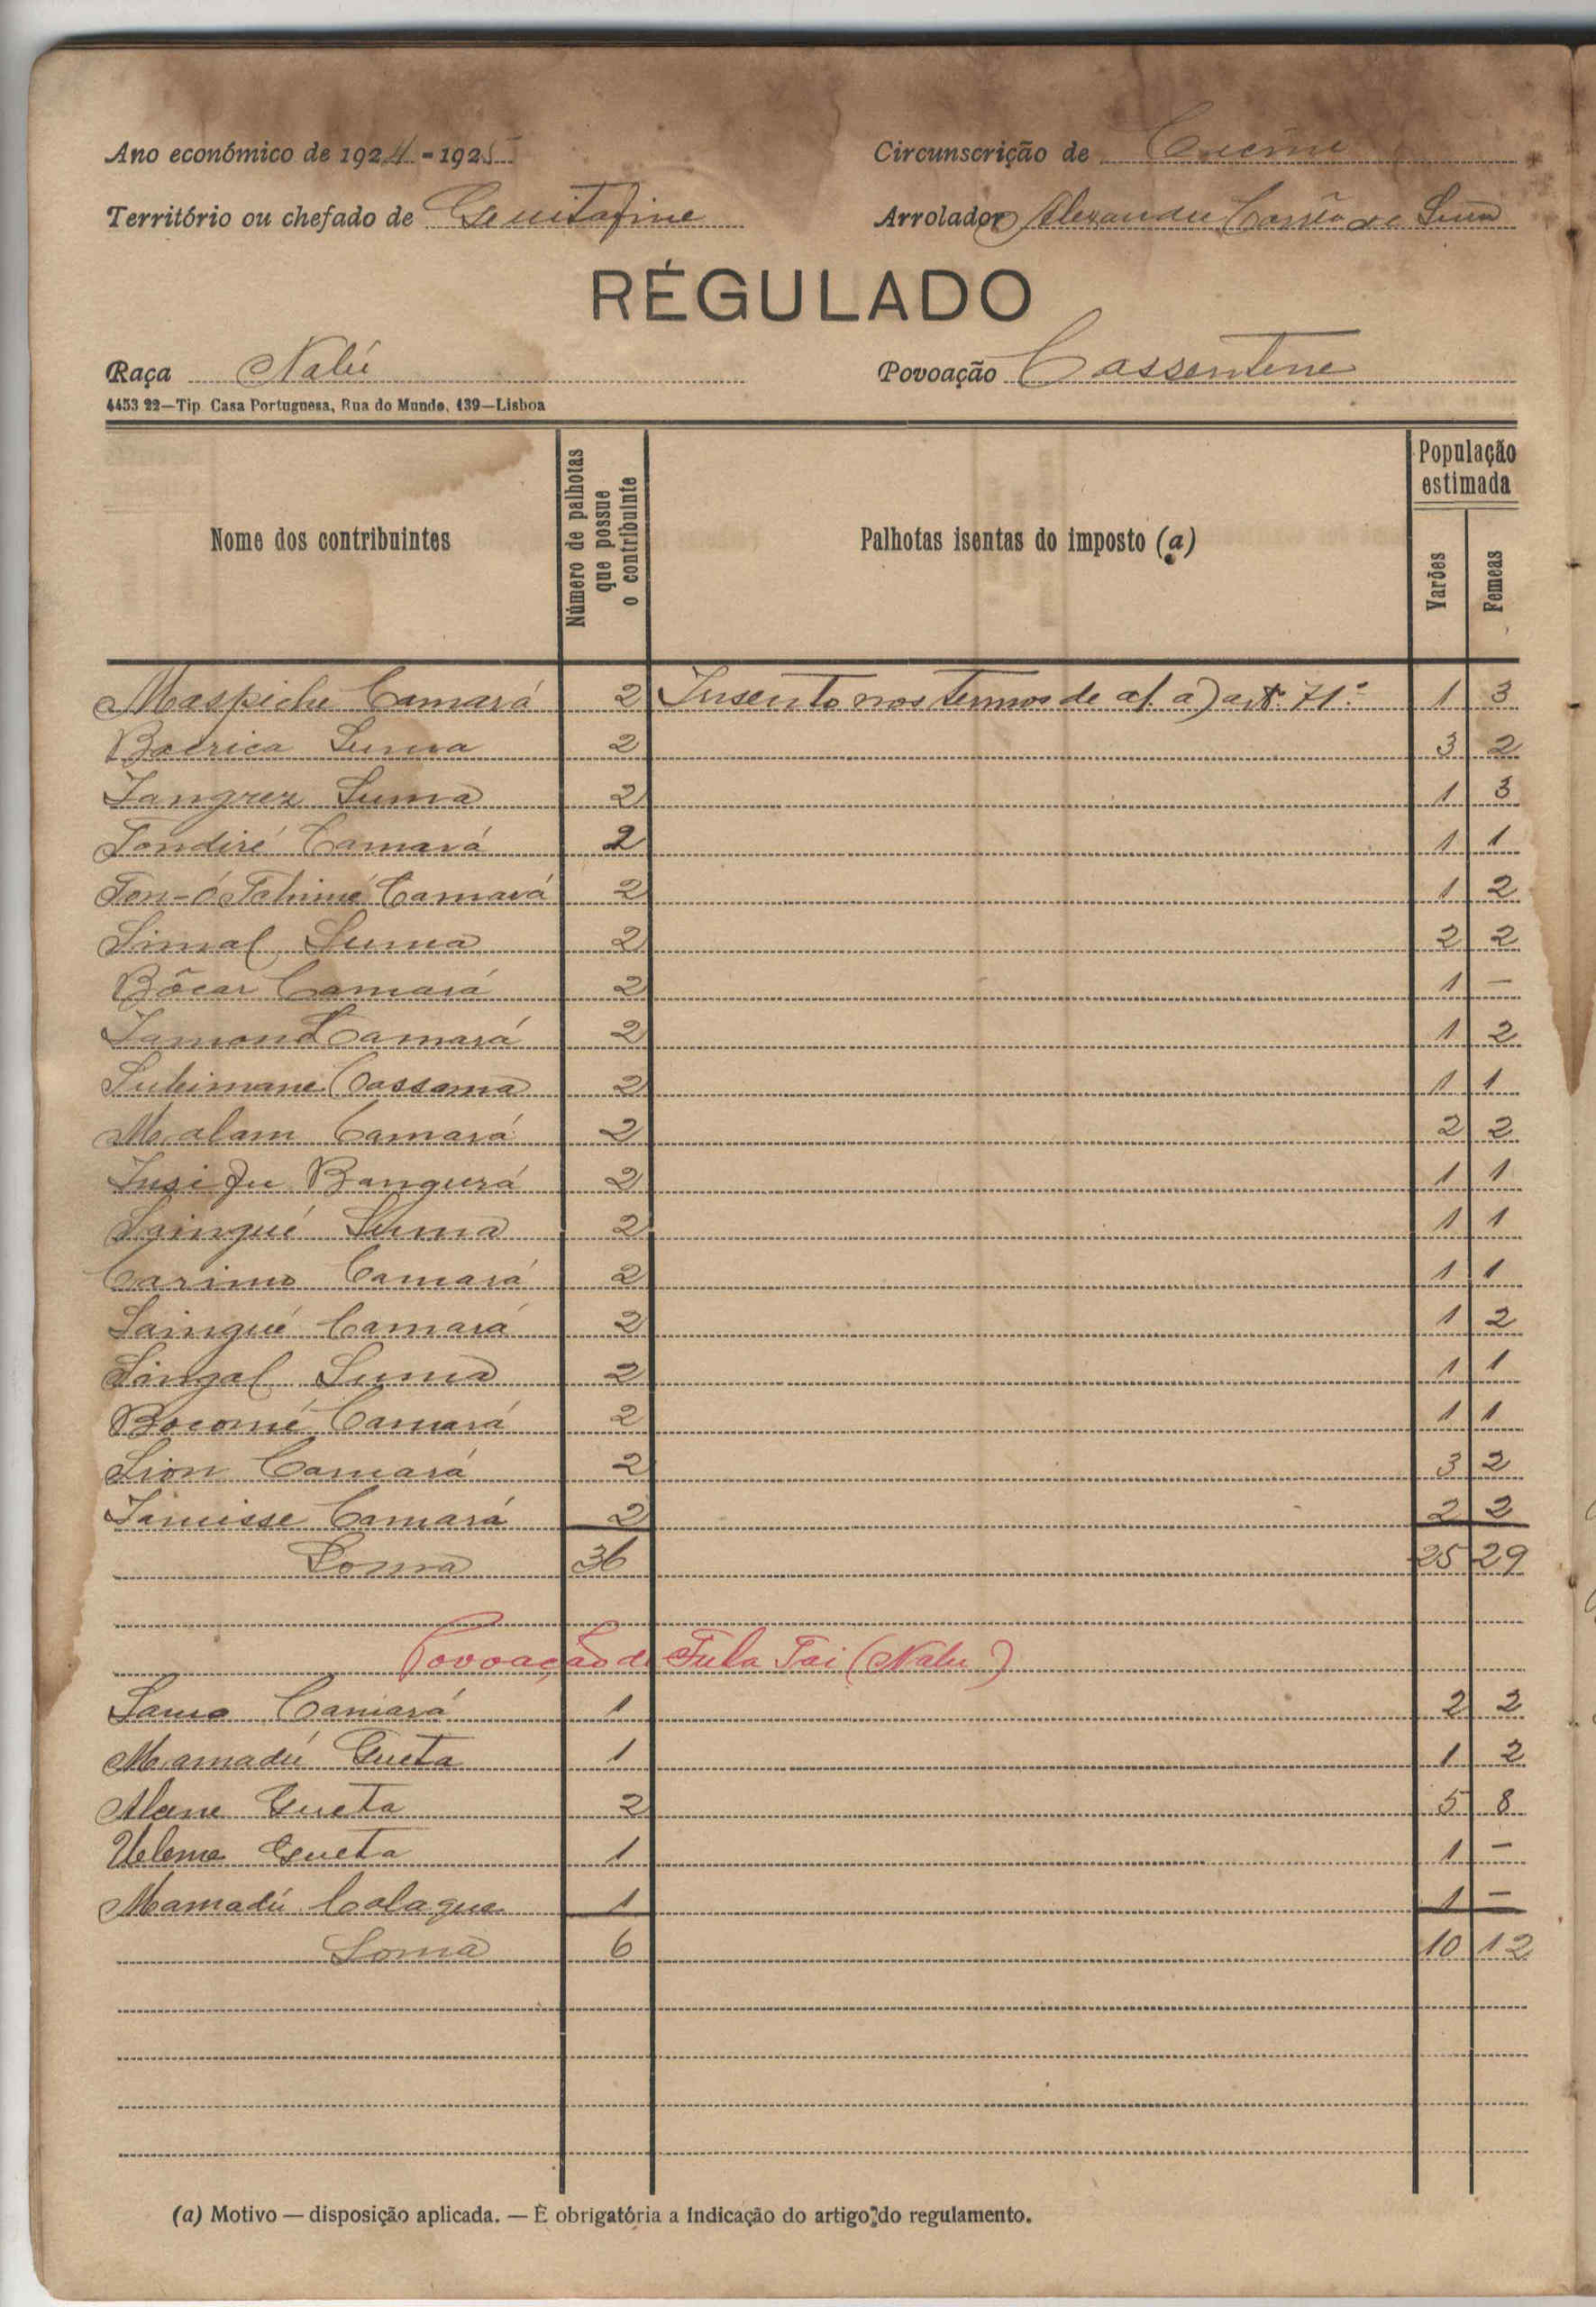 Ano económico de 1924-1925 Circunscrição de
Território ou chefado de Arrolador Alexandre de
RÉGULADO
Raça Nalú Povoação Cassentene
4453 22—Tip. Casa Portuguesa, Rua do Mundo, 139—Lisboa
Nome dos contribuintes Número de palhotas que possue o contribuinte Palhotas isentas do imposto (a) População estimada Varões Femeas
Maspiche Camará 2 nos termos de al. a) artº 71º 1 3
Suma 2 3 2
Suma 2 1 3
Tondiré Camará 2 1 1
Camará 2 1 2
Simal Suma 2 2 2
Bôcar Camará 2 1 —
Camará 2 1 2
Suleimane Cassama 2 1 1
Malam Camará 2 2 2
Bangurá 2 1 1
Saingué Suma 2 1 1
Carimo Camará 2 1 1
Saingué Camará 2 1 2
Singal Suma 2 1 1
Bocomé Camará 2 1 1
Sion Camará 2 3 2
Camará 2 2 2
Soma 36 25 29
Povoação de Fula Tai (Nalu)
Camará 1 2 2
Mamadú Gueta 1 1 2
Gueta 2 5 8
Gueta 1 1 —
Mamadú Colaque 1 1 —
Soma 6 10 12
(a) Motivo — disposição aplicada. — É obrigatória a indicação do artigo do regulamento.